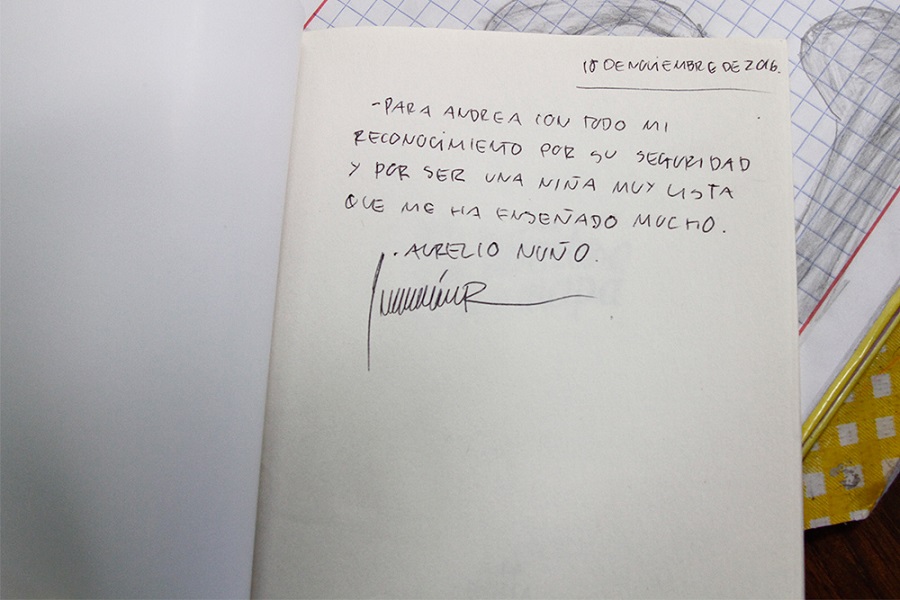 18 DE NOVIEMBRE DE 2016.
-PARA ANDREA CON TODO MI
RECONOCIMIENTO POR SU SEGURIDAD
Y POR SER UNA NIÑA MUY LISTA
QUE ME HA ENSEÑADO MUCHO.
. AURELIO NUÑO.